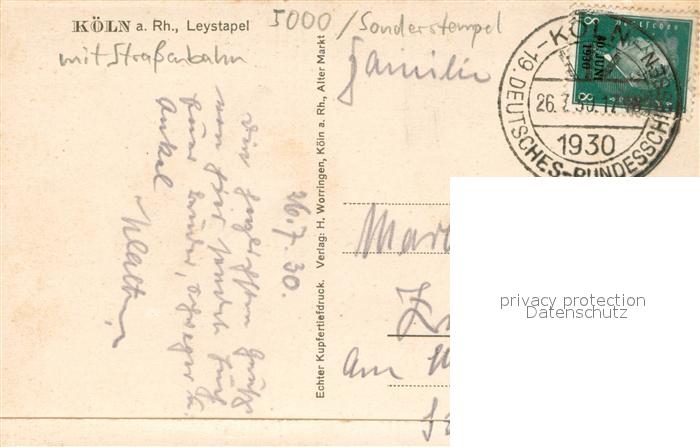 KÖLN a. Rh., Leystapel
5000/Sonderstempel
mit Straßenbahn
Familie
8 8
30. JUNI
1930
KÖLN
26.7.30.17
1930
19. DEUTSCHES-BUNDESSCHIESSEN
26.7.30.
Die herzlichsten Grüße
von hier sendet Euch
Euer Bruder, Schwager u.
Onkel
Walter
Echter Kupfertiefdruck. Verlag: H. Worringen, Köln a. Rh., Alter Markt
Mar
Am
privacy protection
Datenschutz